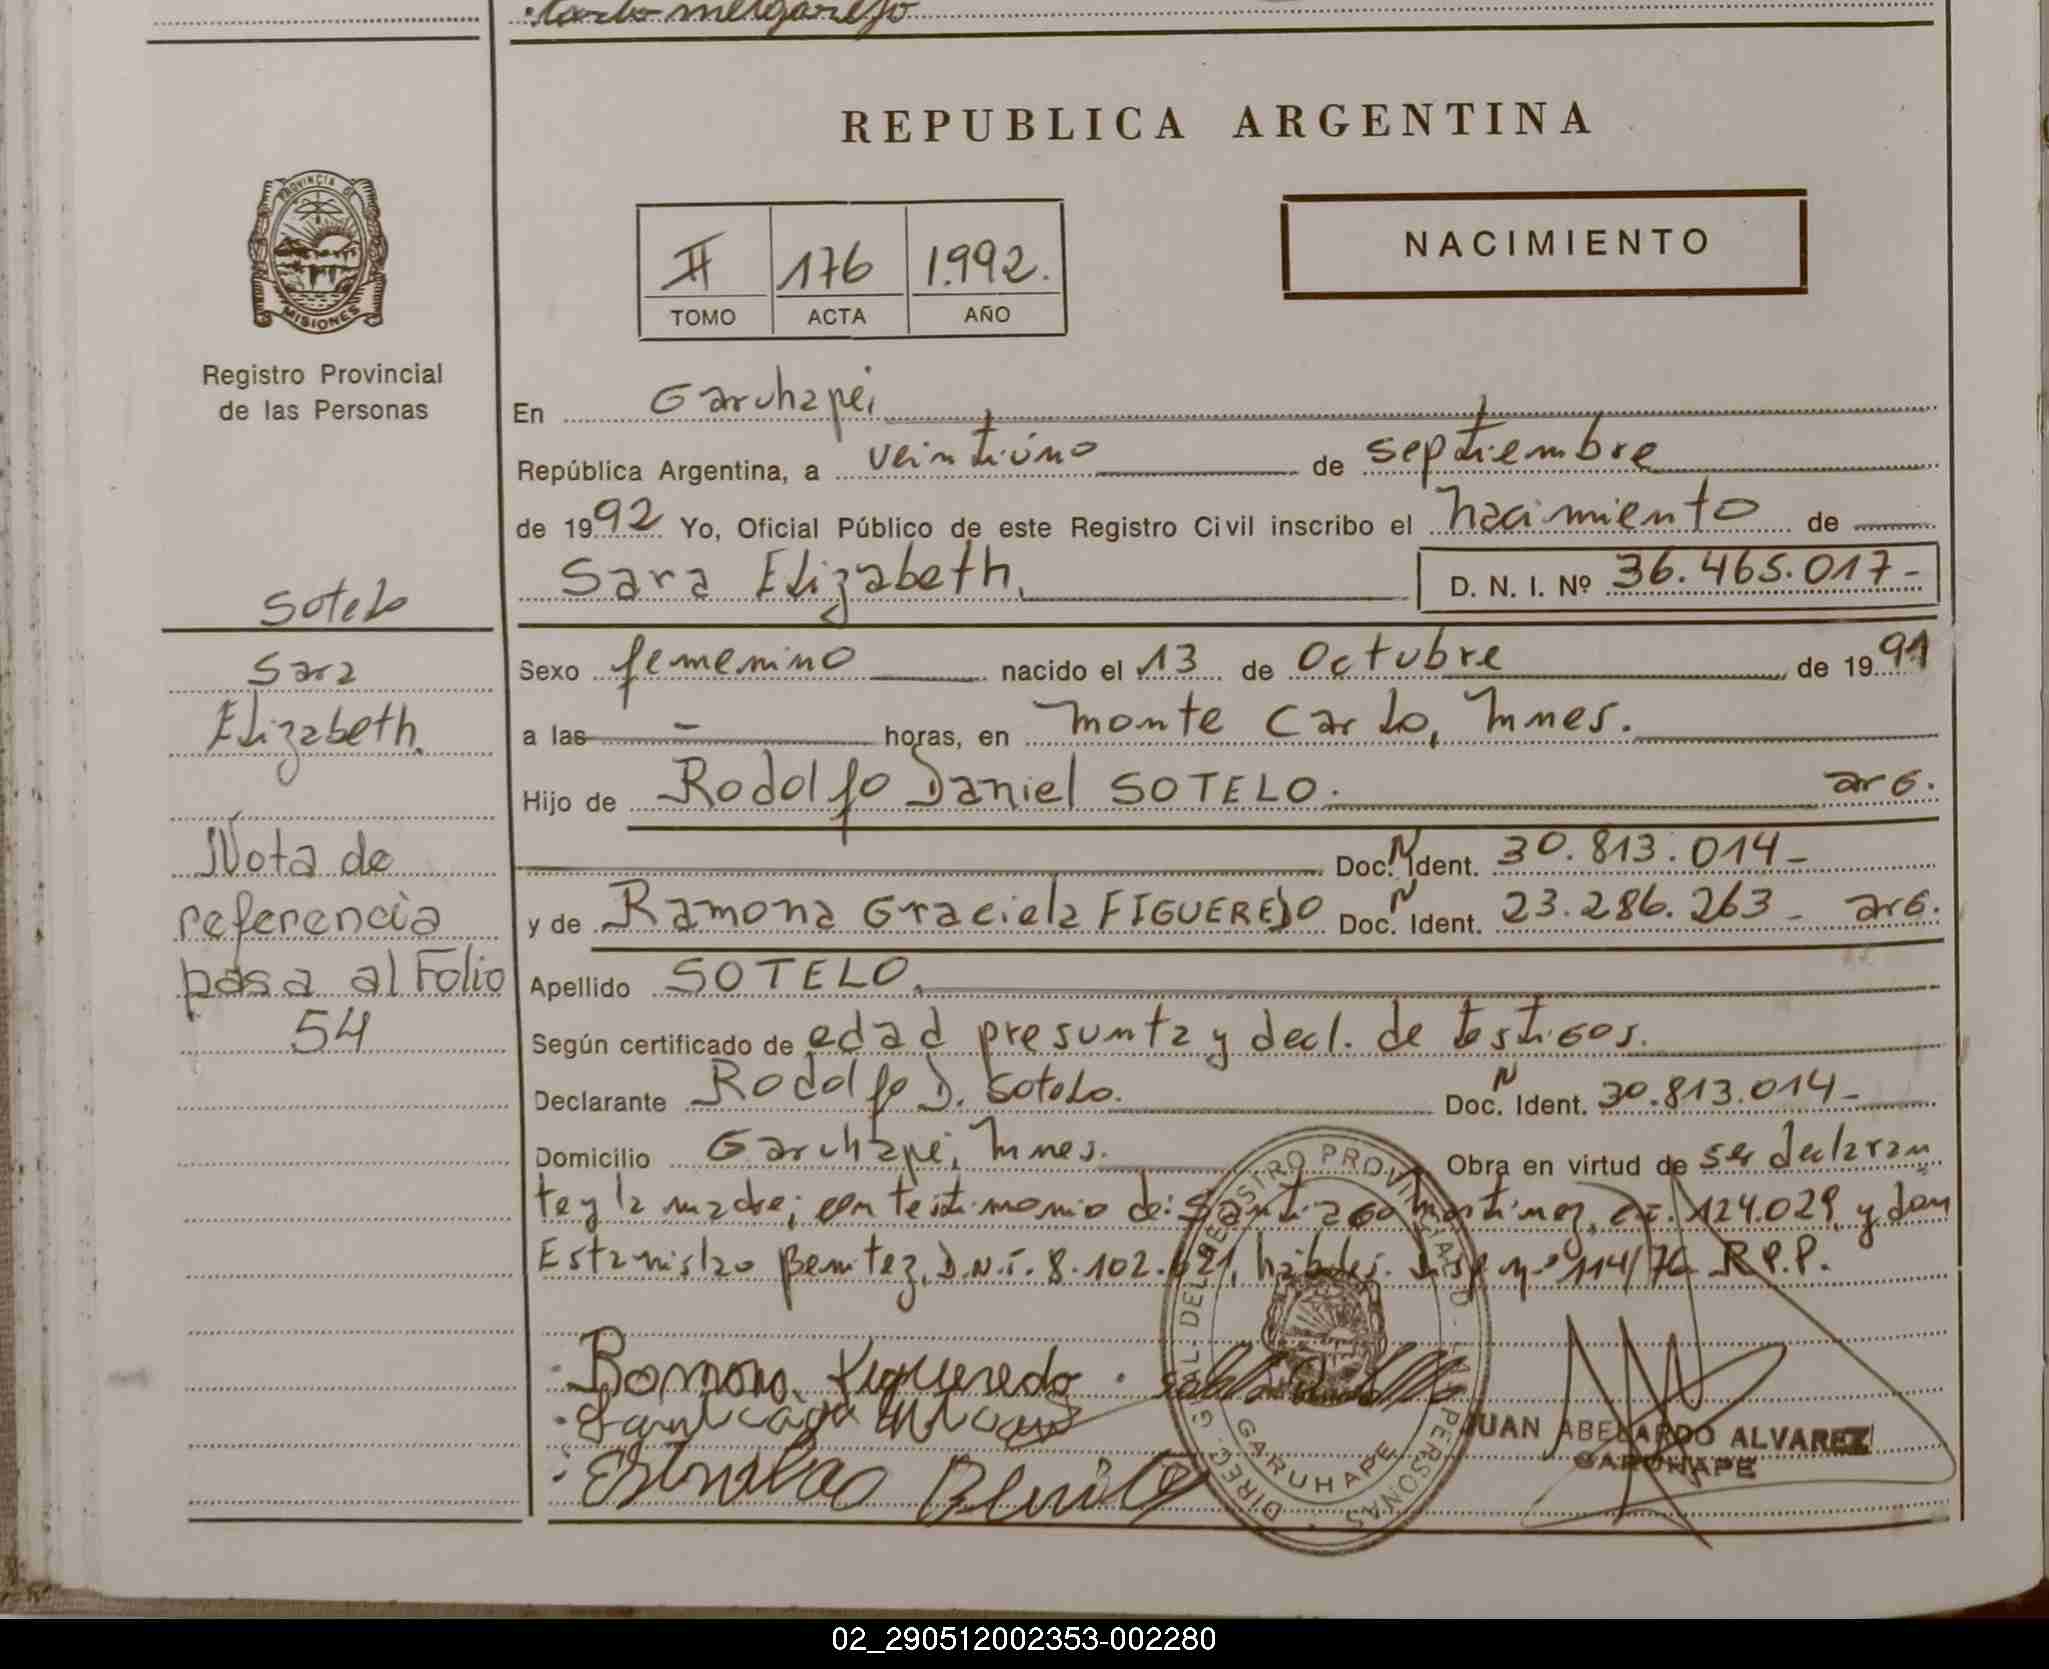 melgarejo
REPUBLICA ARGENTINA
PROVINCIA DE
MISIONES
Registro Provincial
de las Personas
II 176 1.992.
TOMO ACTA AÑO
NACIMIENTO
En Garuhapé,
República Argentina, a veintiúno de septiembre
de 1992 Yo, Oficial Público de este Registro Civil inscribo el nacimiento de
Sara Elizabeth, D. N. I. Nº 36.465.017-
Sotelo
Sara
Elizabeth.
Nota de
referencia
pasa al Folio
54
Sexo femenino nacido el 13 de Octubre de 1991
a las - horas, en Monte Carlo, Mnes.
Hijo de Rodolfo Daniel SOTELO. arg.
Doc. N Ident. 30.813.014-
y de Ramona Graciela FIGUEREDO Doc. N Ident. 23.286.263- arg.
Apellido SOTELO,
Según certificado de edad presunta y decl. de testigos.
Declarante Rodolfo D. Sotelo. Doc. N Ident. 30.813.014-
Domicilio Garuhapé, Mnes. Obra en virtud de ser declaran
te y la madre; con testimonio de: Santiago Martinez, 124.029, y don
Estanislao Benitez, D.N.I. 8.102.621, hábiles. Disp. nº 114/76 R.P.P.
Ramona Figueredo
Estanislao Benitez
DIREC. GRAL. DEL REGISTRO PROVINCIAL DE LAS PERSONAS
GARUHAPE
JUAN ABELARDO ALVAREZ
GARUHAPE
02_290512002353-002280